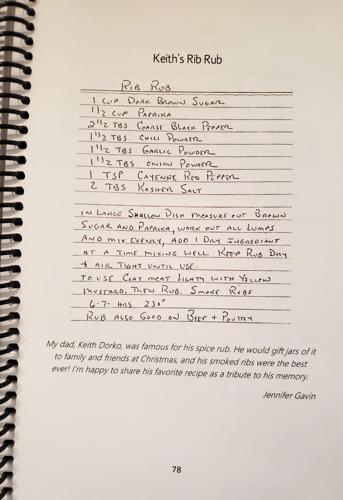 Keith's Rib Rub
RIB RUB
1 CUP DARK BROWN SUGAR
1/2 CUP PAPRIKA
2 1/2 TBS COARSE BLACK PEPPER
1 1/2 TBS CHILI POWDER
1 1/2 TBS GARLIC POWDER
1 1/2 TBS ONION POWDER
1 TSP CAYENNE RED PEPPER
2 TBS KOSHER SALT
IN LARGE SHALLOW DISH MEASURE OUT BROWN
SUGAR AND PAPRIKA, WORK OUT ALL LUMPS
AND MIX EVENLY, ADD 1 DRY INGREDIANT
AT A TIME MIXING WELL KEEP RUB DRY
+ AIR TIGHT UNTIL USE.
TO USE COAT MEAT LIGHTY WITH YELLOW
MUSTARD, THEN RUB. SMOKE RIBS
6-7- HRS 230°
RUB ALSO GOOD ON BEEF + POUTRY
My dad, Keith Dorko, was famous for his spice rub. He would gift jars of it
to family and friends at Christmas, and his smoked ribs were the best
ever! I'm happy to share his favorite recipe as a tribute to his memory.
Jennifer Gavin
78